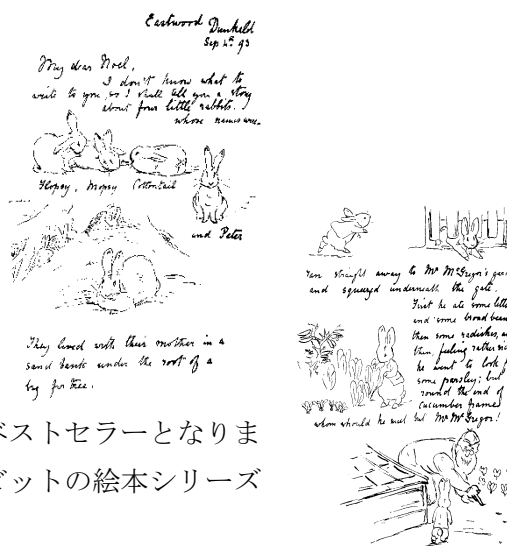 Eastwood Dunkeld
Sep 4th 93
My dear Noel,
I don't know what to
write to you, so I shall tell you a story
about four little rabbits.
whose names were
Flopsy, Mopsy Cottontail
and Peter
They lived with their mother in a
sand bank under the root of a
big fir tree.
ベストセラーとなりま
ビットの絵本シリーズ
ran straight away to Mr McGregor's gar
and squeezed underneath the gate.
First he ate some lettu
and some broad bean
then some radishes, an
then, feeling rather sic
he went to look f
some parsley; but
round the end of
cucumber frame
whom should he meet but Mr McGregor!